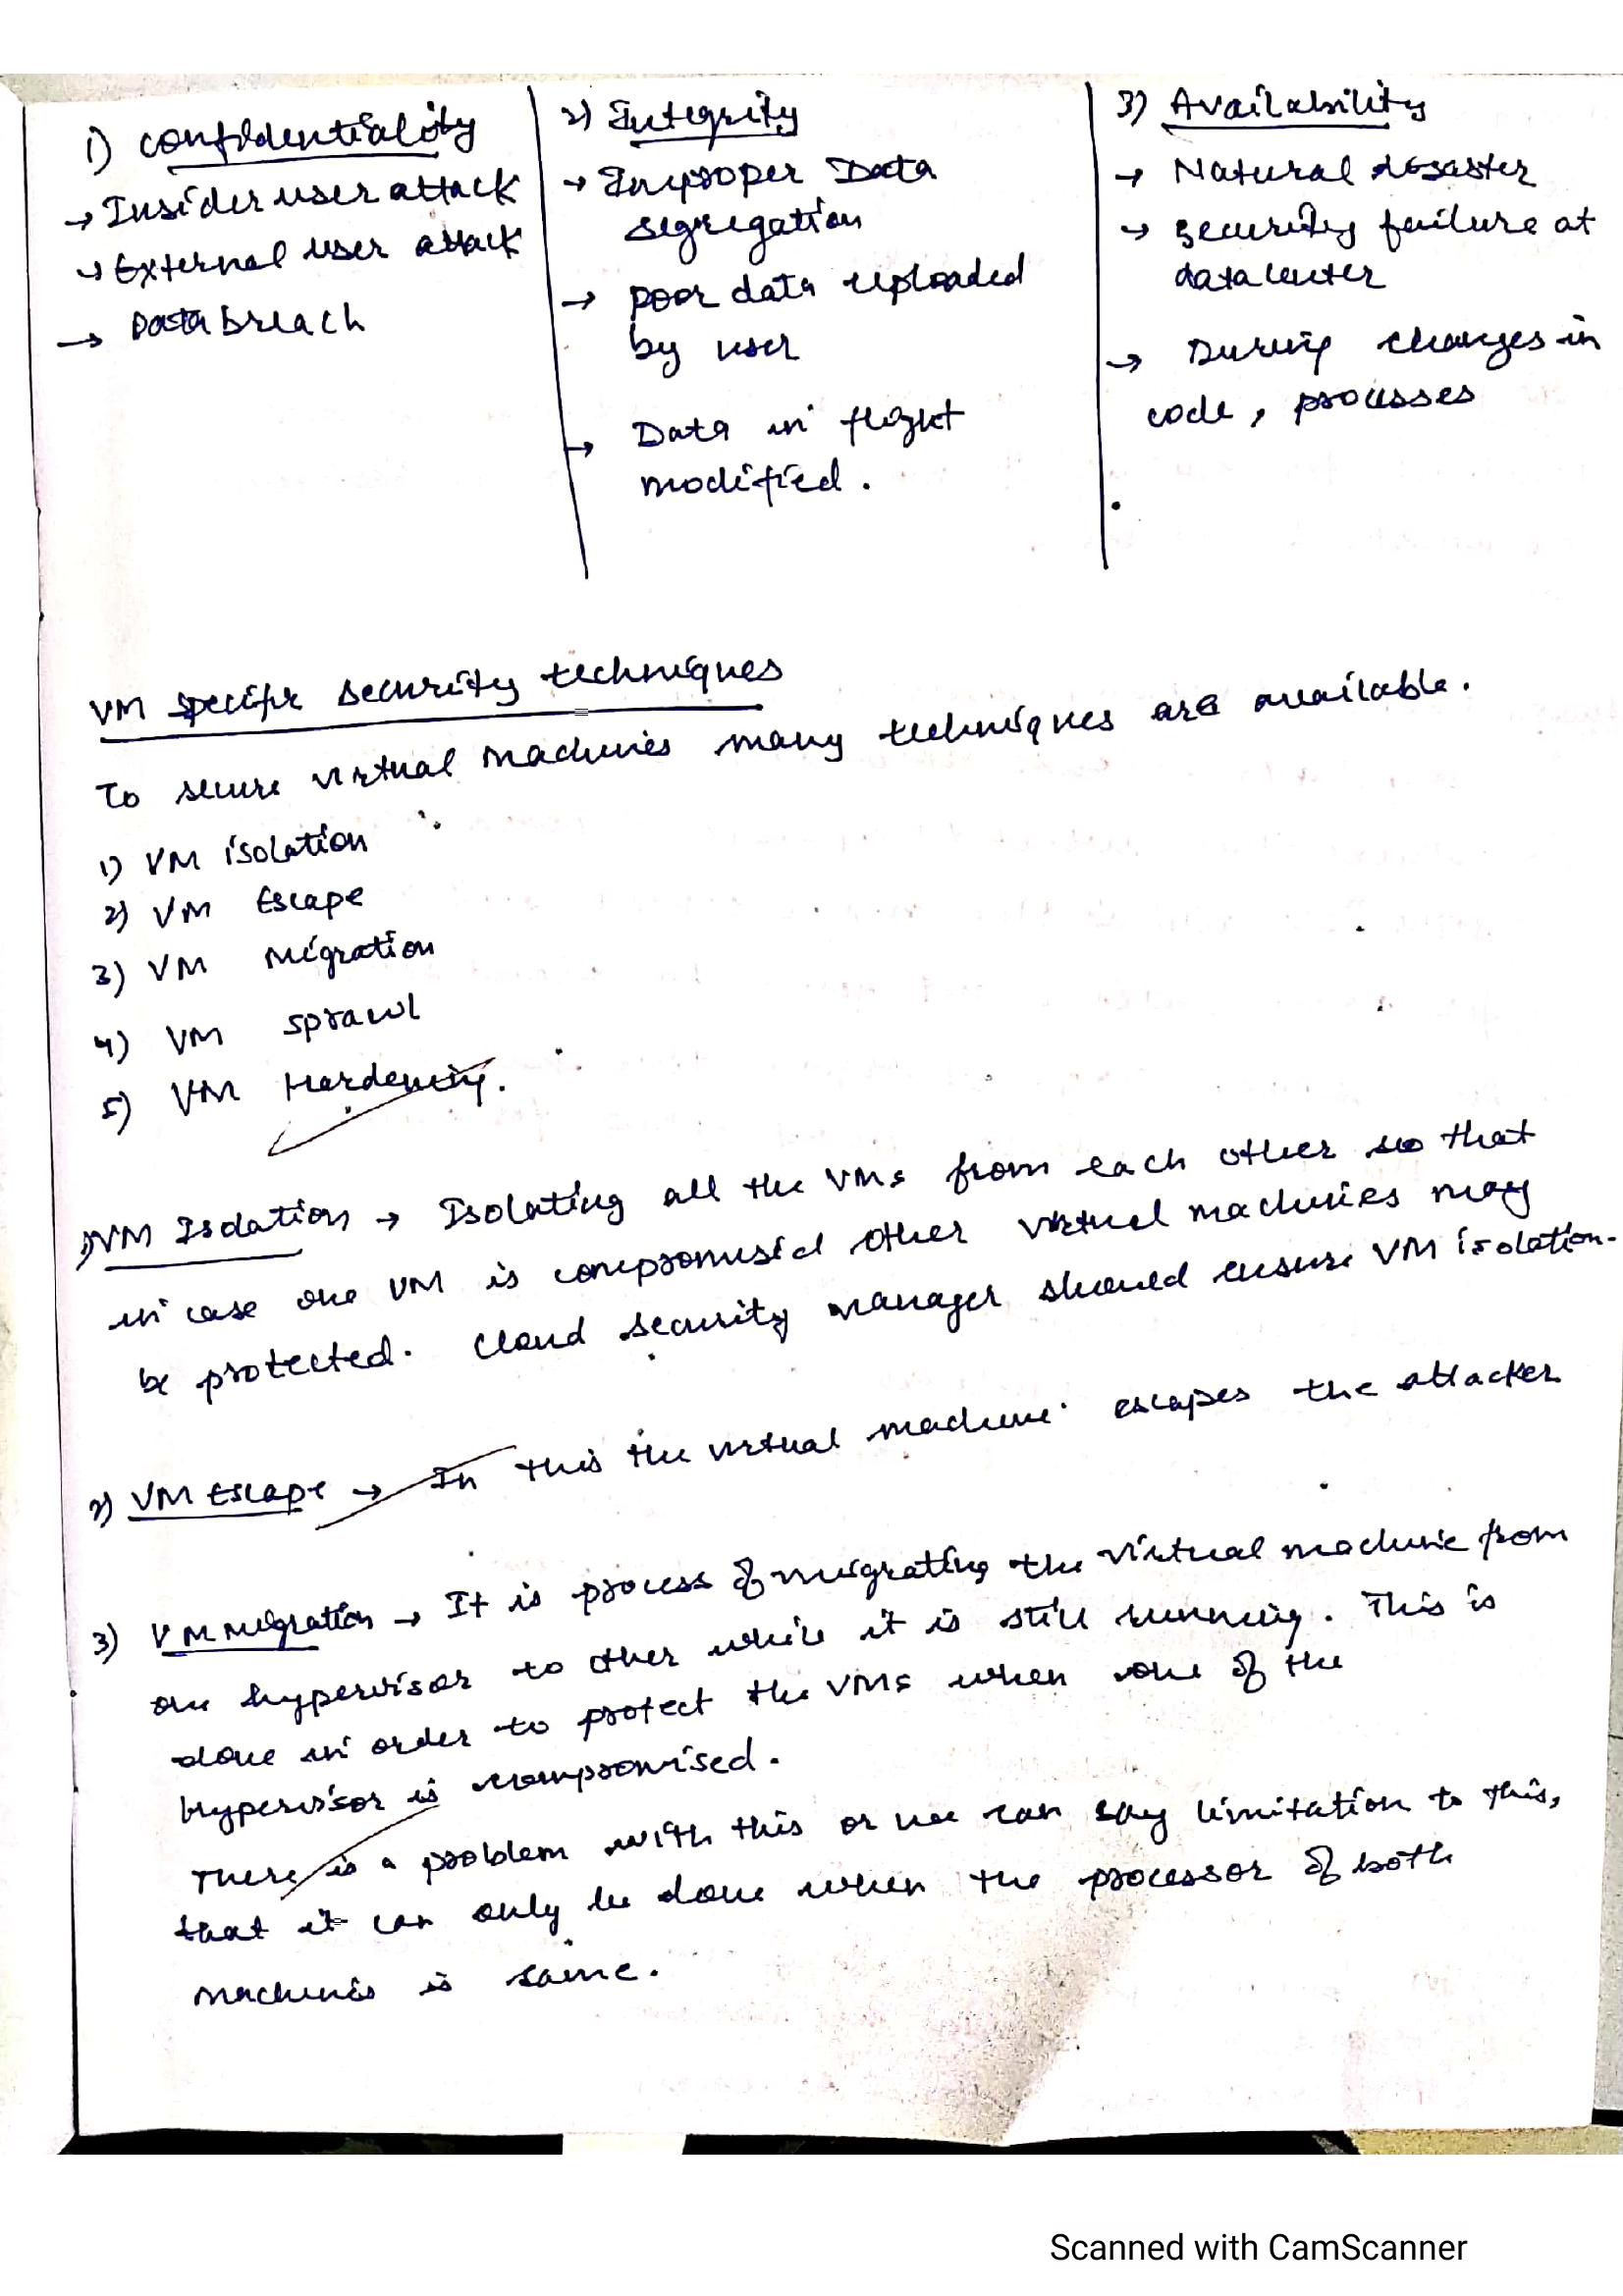 1) Confidentiality
→ Insider user attack
→ External user attack
→ Data breach
2) Integrity
→ Improper Data
segregation
→ poor data uploaded
by user
→ Data in flight
modified.
3) Availability
→ Natural disaster
→ security failure at
data center
→ During changes in
code, processes
VM specific security techniques
To secure virtual machines many techniques are available.
1) VM isolation
2) VM Escape
3) VM Migration
4) VM sprawl
5) VM Hardening.
1) VM Isolation → Isolating all the VMs from each other so that
in case one VM is compromised other virtual machines may
be protected. Cloud security manager should ensure VM isolation.
2) VM Escape → In this the virtual machine escapes the attacker
3) VM Migration → It is process of migrating the virtual machine from
one hypervisor to other while it is still running. This is
done in order to protect the VMs when one of the
hypervisor is compromised.
There is a problem with this or we can say limitation to this,
that it can only be done when the processor of both
machines is same.
Scanned with CamScanner